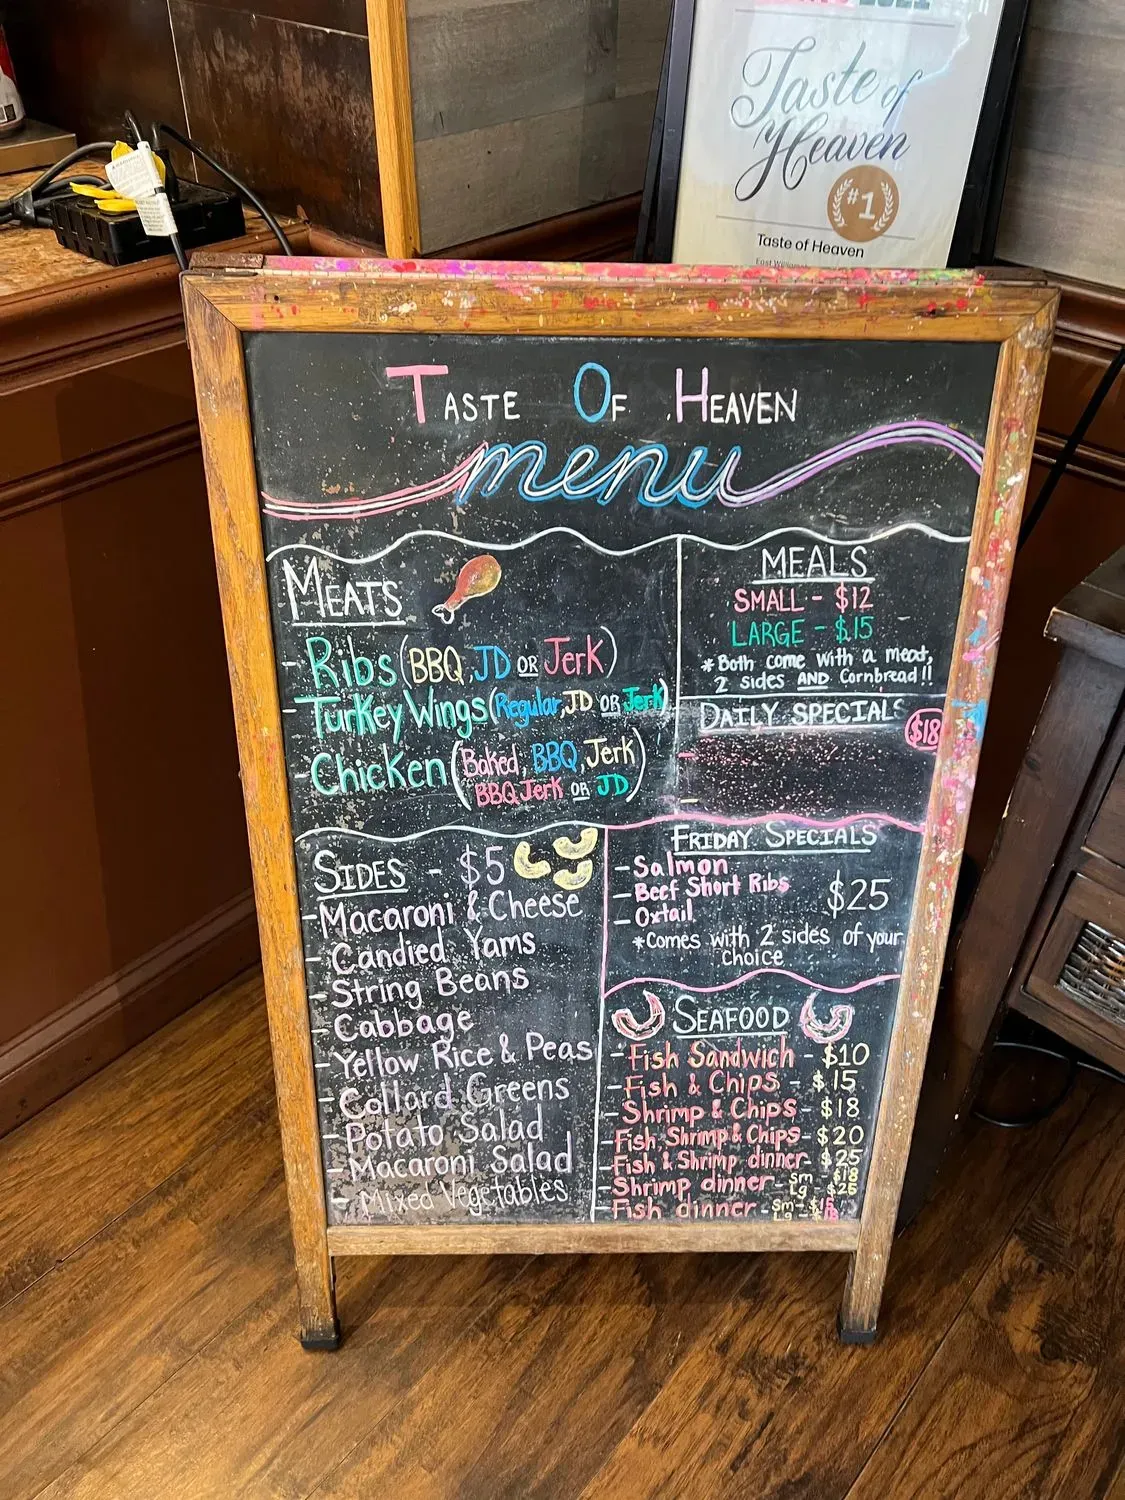 Taste of
Heaven
#1
Taste of Heaven
TASTE OF HEAVEN
menu
MEATS
- Ribs (BBQ, JD OR Jerk)
- Turkey Wings (Regular, JD OR Jerk)
- Chicken (Baked, BBQ, Jerk
BBQ Jerk OR JD)
MEALS
SMALL - $12
LARGE - $15
*Both come with a meat,
2 sides AND Cornbread!!
DAILY SPECIALS
$18
-
-
SIDES - $5
- Macaroni & Cheese
- Candied Yams
- String Beans
- Cabbage
- Yellow Rice & Peas
- Collard Greens
- Potato Salad
- Macaroni Salad
- Mixed Vegetables
FRIDAY SPECIALS
- Salmon
- Beef Short Ribs $25
- Oxtail
*Comes with 2 sides of your
choice
SEAFOOD
- Fish Sandwich - $10
- Fish & Chips - $15
- Shrimp & Chips - $18
- Fish, Shrimp & Chips - $20
- Fish & Shrimp dinner - $25
- Shrimp dinner - sm
Lg
- Fish dinner - sm
Lg